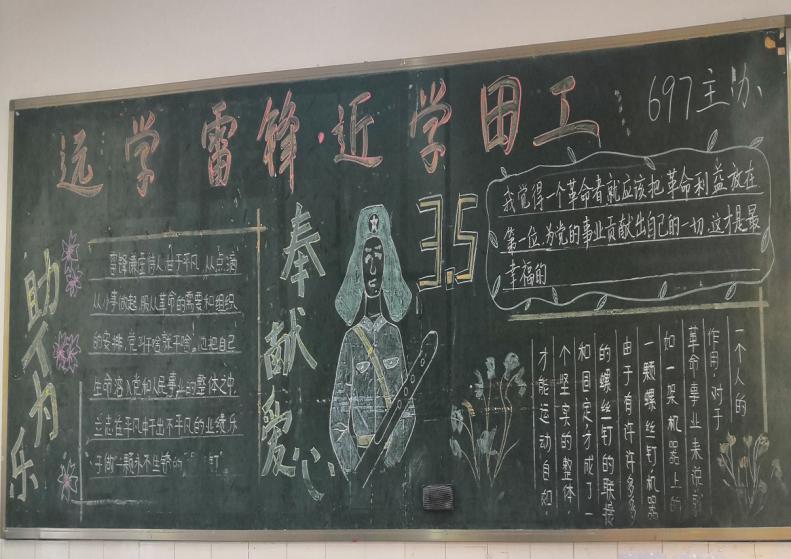 远学雷锋·近学田工
697主办
助人为乐
雷锋谦虚待人,甘于平凡,从点滴
从小事做起,服从革命的需要和组织
的安排,党叫干啥就干啥,还把自己
生命溶入党和人民事业的整体之中,
立志在平凡中干出不平凡的业绩,乐
于做一颗永不生锈的" 钉"
奉献爱心
3.5
我觉得一个革命者就应该把革命利益放在
第一位,为党的事业贡献出自己的一切,这才是最
幸福的
一个人的
作用,对于
革命事业来说,就
如一架机器上的
一颗螺丝钉,机器
由于有许许多多
的螺丝钉的联接
和固定,才成了一
个坚实的整体,
才能运动自如